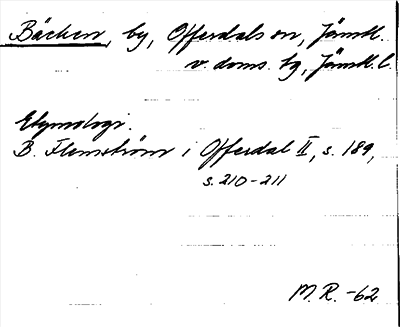 Bäcken, by, Offerdals sn, Jämtl.
v. doms. tg, Jämtl. l.
Etymologi.
B. Flemström i Offerdal II, s. 189,
s. 210-211
M. R. -62